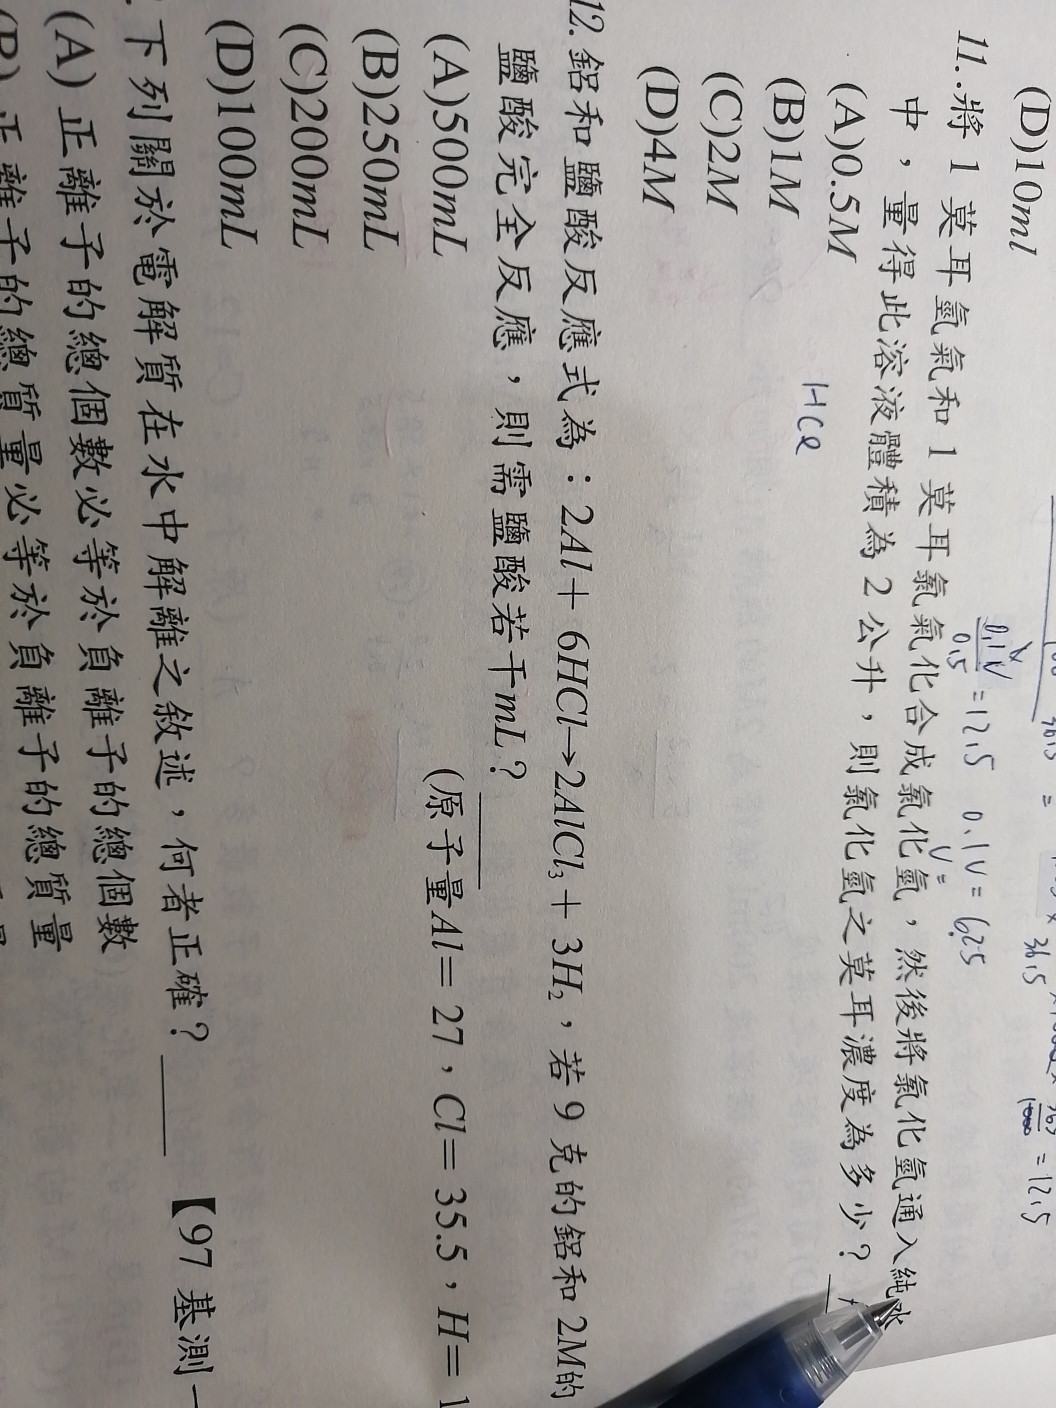 (D)10ml
11.將1莫耳氫氣和1莫耳氯氣化合成氯化氫，然後將氯化氫通入純水
中，量得此溶液體積為2公升，則氯化氫之莫耳濃度為多少？
(A)0.5M
(B)1M
(C)2M
(D)4M
HCl
0.1V
0.5
=12.5
0.1V=62.5
V=
36.5
=12.5
12.鋁和鹽酸反應式為：2Al+6HCl→2AlCl₃+3H₂，若9克的鋁和2M的
鹽酸完全反應，則需鹽酸若干mL？
(原子量Al=27，Cl=35.5，H=1
(A)500mL
(B)250mL
(C)200mL
(D)100mL
下列關於電解質在水中解離之敘述，何者正確？
【97基測一
(A)正離子的總個數必等於負離子的總個數
正離子的總質量必等於負離子的總質量